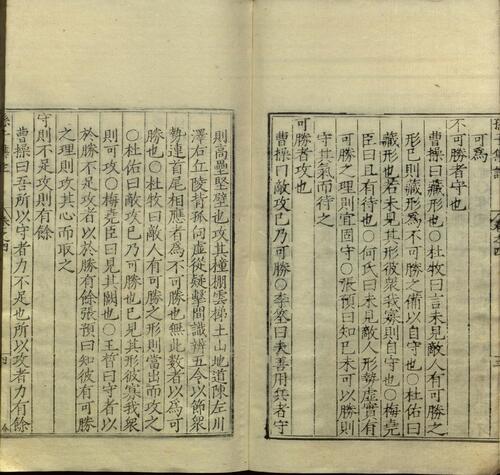 可爲
不可勝者守也
曹操曰藏形也○杜牧曰言未見敵人有可勝之
形已則藏形爲不可勝之備以自守也○杜佑曰
藏形也若未見其形彼衆我寡則自守也○梅堯
臣曰且有待也○何氏曰未見敵人形勢虛實有
可勝之理則宜固守○張預曰知己未可以勝則
守其氣而待之
可勝者攻也
曹操曰敵攻己乃可勝○李筌曰夫善用兵者守
則高壘堅壁也攻其橦棚雲梯土山地道陳左川
澤右丘陵背孤向虛從疑擊間識辨五令以節衆
勢連首尾相應者爲不可勝也無此數者以爲可
勝也○杜牧曰敵人有可勝之形則當出而攻之
○杜佑曰敵攻已乃可勝也已見其形彼寡我衆
則可攻○梅堯臣曰見其闕也○王晳曰守者以
於勝不足攻者以於勝有餘張預曰知彼有可勝
之理則攻其心而取之
守則不足攻則有餘
曹操曰吾所以守者力不足也所以攻者力有餘